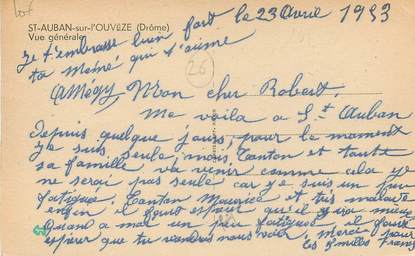 ST-AUBAN-sur-l'OUVÈZE (Drôme)
Vue générale
le 23 Avril 1953
je t'embrasse bien fort
ta mémé qui t'aime
26
Mon cher Robert.
Me voila a St Auban
Depuis quelque jours, pour le moment
je suis seule mais Tonton et toute
sa famille va venir comme cela je
ne serai pas seule car je suis un peu
fatiguée. Tonton Maurice et très malade
enfin il faut espérer qu'il y va mieux
Quand a moi un peu fatiguée il faut
espérer que tu viendras nous voir, merci pour
les milles Francs